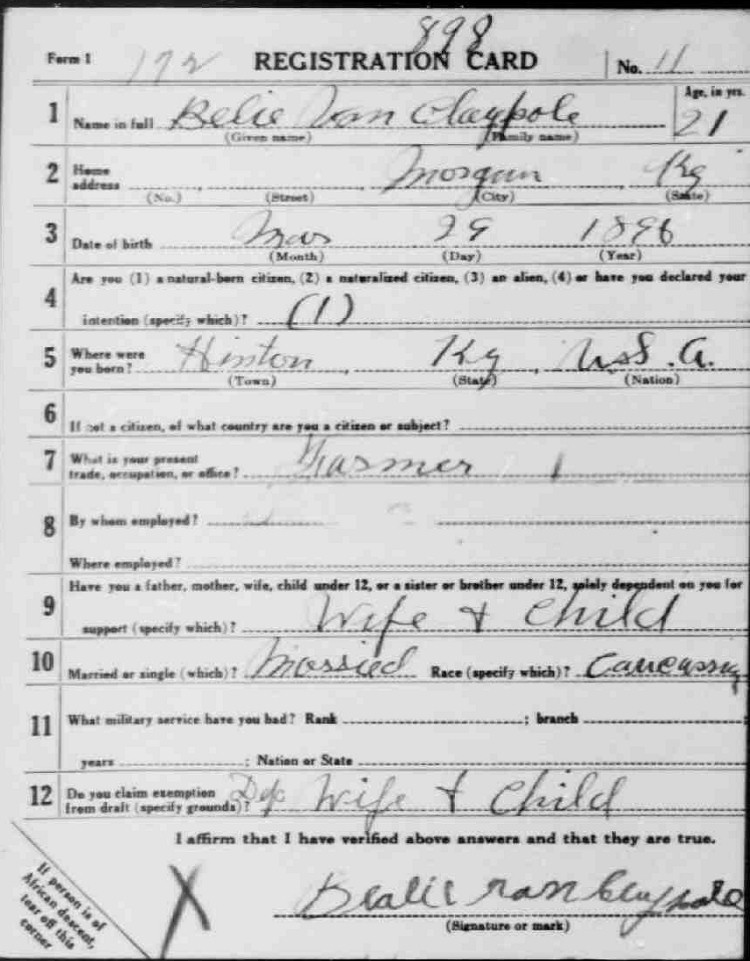 898
Form 1 172 REGISTRATION CARD No. 11
1 Name in full Belie Van Claypole Age, in yrs. 21
(Given name) (Family name)
2 Home address Morgan Ky
(No.) (Street) (City) (State)
3 Date of birth Mar 29 1896
(Month) (Day) (Year)
4 Are you (1) a natural-born citizen, (2) a naturalized citizen, (3) an alien, (4) or have you declared your
intention (specify which)? (1)
5 Where were you born? Hinton Ky U.S.A.
(Town) (State) (Nation)
6 If not a citizen, of what country are you a citizen or subject?
7 What is your present trade, occupation, or office? Farmer
8 By whom employed?
Where employed?
9 Have you a father, mother, wife, child under 12, or a sister or brother under 12, solely dependent on you for
support (specify which)? Wife + Child
10 Married or single (which)? Married Race (specify which)?
11 What military service have you had? Rank ; branch ;
years ; Nation or State
12 Do you claim exemption from draft (specify grounds)? Dep Wife + Child
I affirm that I have verified above answers and that they are true.
If person is of
African descent,
tear off this
corner
X
Bealie Van Claypole
(Signature or mark)